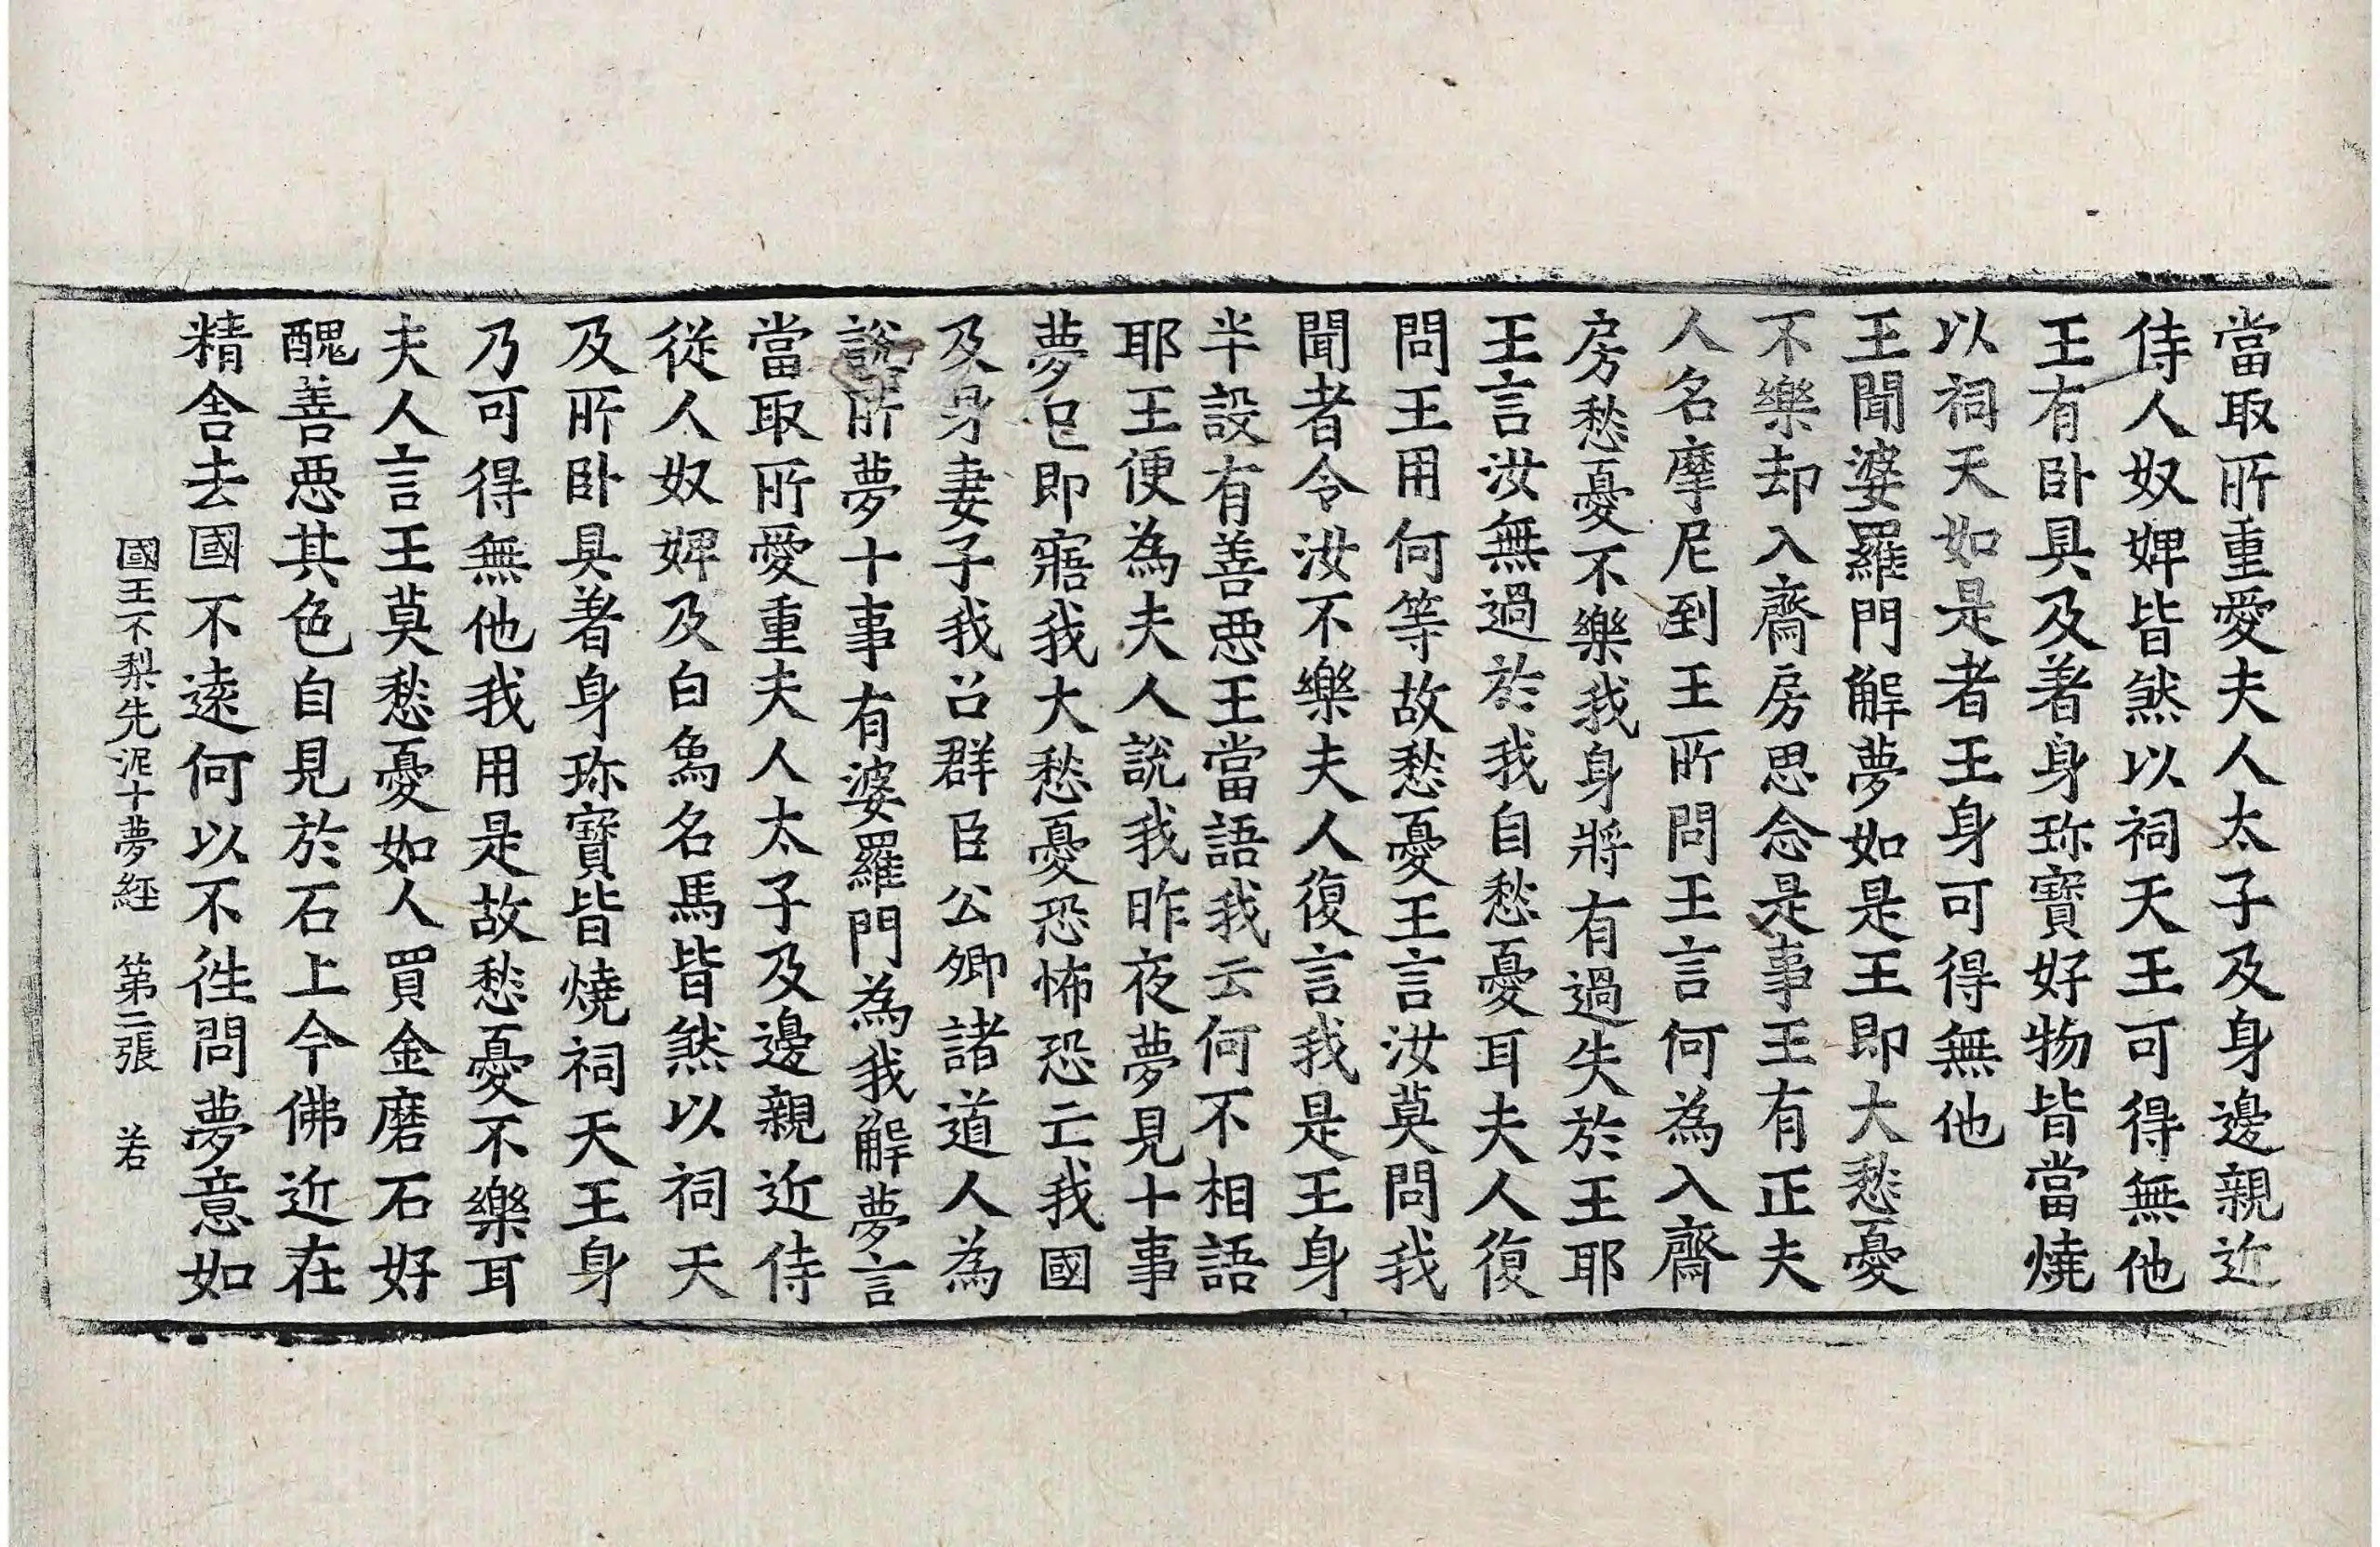 當取所重愛夫人太子及身邊親近
侍人奴婢皆然以祠天王可得無他
王有卧具及著身珎寶好物皆當燒
以祠天如是者王身可得無他
王聞婆羅門解夢如是王即大愁憂
不樂却入齋房思念是事王有正夫
人名摩尼到王所問王言何為入齋
房愁憂不樂我身將有過失於王耶
王言汝無過於我自愁憂耳夫人復
問王用何等故愁憂王言汝莫問我
聞者令汝不樂夫人復言我是王身
半設有善惡王當語我云何不相語
耶王便為夫人說我昨夜夢見十事
夢已即寤我大愁憂恐怖恐亡我國
及身妻子我召群臣公卿諸道人為
說所夢十事有婆羅門為我解夢言
當取所愛重夫人太子及邊親近侍
從人奴婢及白象名馬皆然以祠天
及所卧具著身珎寶皆燒祠天王身
乃可得無他我用是故愁憂不樂耳
夫人言王莫愁憂如人買金磨石好
醜善惡其色自見於石上今佛近在
精舍去國不遠何以不往問夢意如
國王不梨先泥十夢経　第二張　若